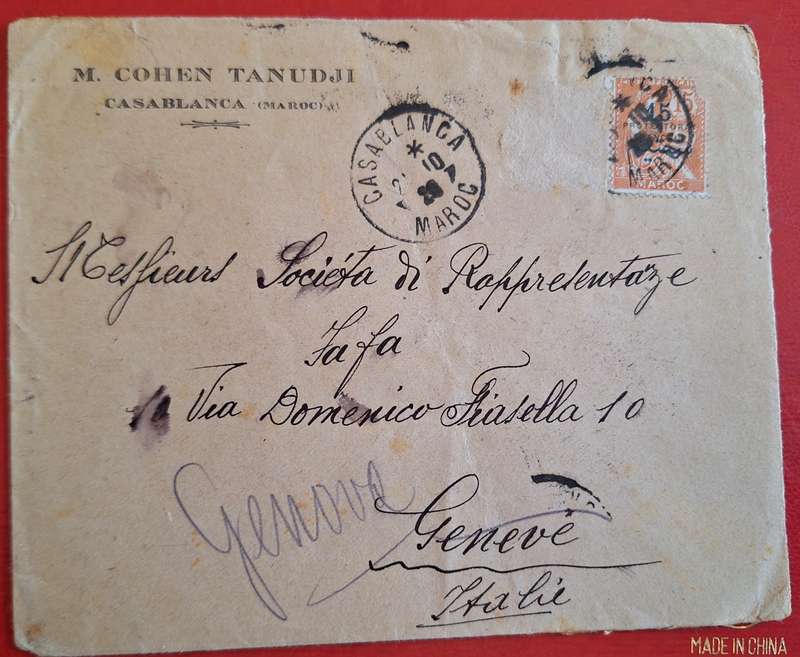 M. COHEN TANUDJI
CASABLANCA (MAROC)
CASABLANCA
10
MAROC
15
MAROC
MAROC
Messieurs Sociéta di Rappresentaze
Safa
10 Via Domenico Fiasella 10
Genova
Genevè
Italie
MADE IN CHINA